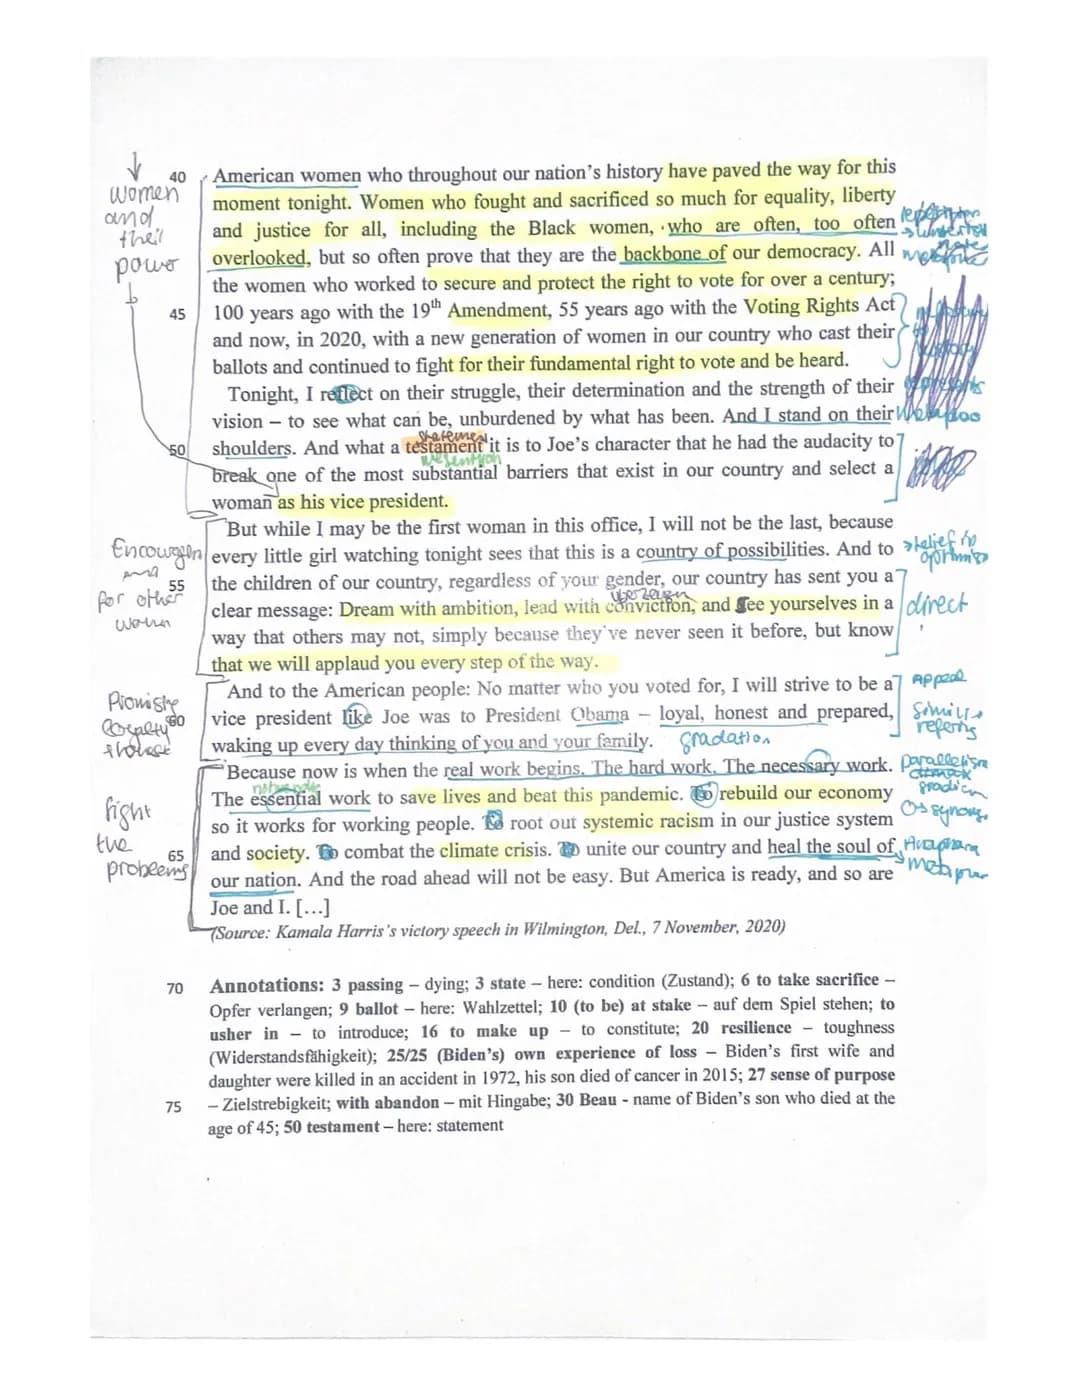 40 American women who throughout our nation's history have paved the way for this
women
and
their
power
moment tonight. Women who fought and sacrificed so much for equality, liberty
and justice for all, including the Black women, who are often, too often
repetition
overlooked, but so often prove that they are the backbone of our democracy. All
the women who worked to secure and protect the right to vote for over a century;
45 100 years ago with the 19th Amendment, 55 years ago with the Voting Rights Act
and now, in 2020, with a new generation of women in our country who cast their
ballots and continued to fight for their fundamental right to vote and be heard.
Tonight, I reflect on their struggle, their determination and the strength of their
vision – to see what can be, unburdened by what has been. And I stand on their
statement
50 shoulders. And what a testament it is to Joe's character that he had the audacity to
wesentlich
break one of the most substantial barriers that exist in our country and select a
woman as his vice president.
But while I may be the first woman in this office, I will not be the last, because
every little girl watching tonight sees that this is a country of possibilities. And to
belief in
for other
55 the children of our country, regardless of your gender, our country has sent you a
überzeugn
clear message: Dream with ambition, lead with conviction, and see yourselves in a
direct
way that others may not, simply because they've never seen it before, but know
that we will applaud you every step of the way.
And to the American people: No matter who you voted for, I will strive to be a
Appeal
60 vice president like Joe was to President Obama – loyal, honest and prepared,
waking up every day thinking of you and your family.
gradation
Because now is when the real work begins. The hard work. The necessary work.
parallelism
The essential work to save lives and beat this pandemic. To rebuild our economy
fight
the
problems
so it works for working people. To root out systemic racism in our justice system
65 and society. To combat the climate crisis. To unite our country and heal the soul of
Anaphora
our nation. And the road ahead will not be easy. But America is ready, and so are
Joe and I. [...]
(Source: Kamala Harris's victory speech in Wilmington, Del., 7 November, 2020)
70 Annotations: 3 passing – dying; 3 state – here: condition (Zustand); 6 to take sacrifice –
Opfer verlangen; 9 ballot – here: Wahlzettel; 10 (to be) at stake – auf dem Spiel stehen; to
usher in – to introduce; 16 to make up – to constitute; 20 resilience – toughness
(Widerstandsfähigkeit); 25/25 (Biden's) own experience of loss – Biden's first wife and
daughter were killed in an accident in 1972, his son died of cancer in 2015; 27 sense of purpose
75 – Zielstrebigkeit; with abandon – mit Hingabe; 30 Beau - name of Biden's son who died at the
age of 45; 50 testament – here: statement